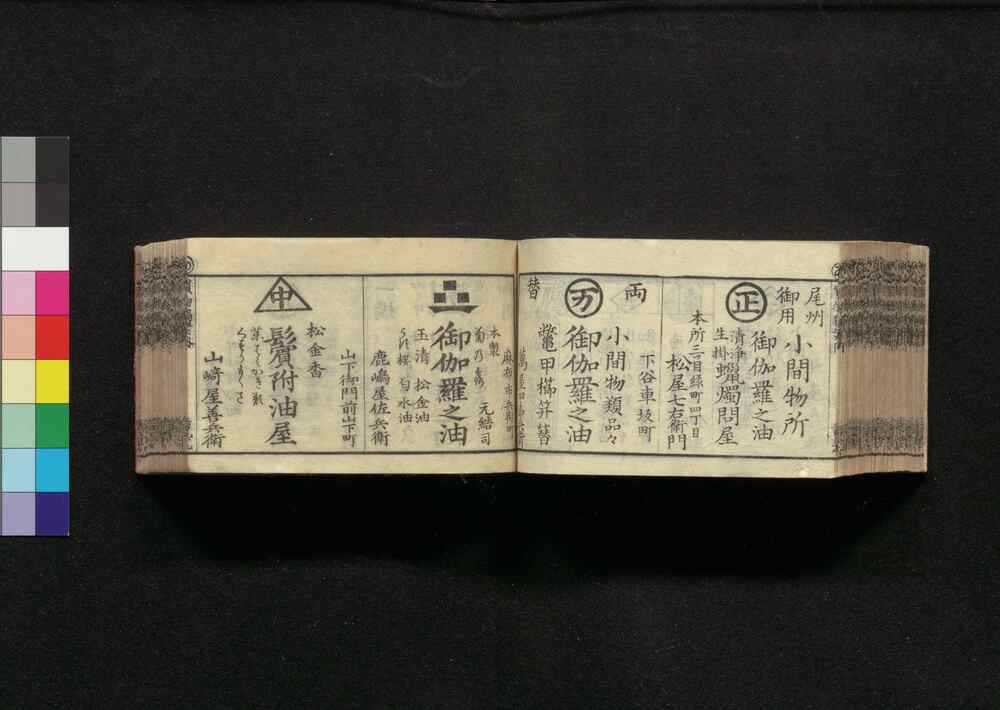 尾州
御用
小間物所
正
御伽羅之油
清浄
生掛
蠟燭問屋
本所三目緑町四丁目
松屋七右衛門
両
小間物類品々
下谷車坂町
万
御伽羅之油
鼈甲櫛笄簪
替
本製
元結司
御伽羅之油
玉清 松金油
白水油
鹿嶋屋佐兵衛
山下御門前山下町
中
松金香
鬢附油屋
山﨑屋善兵衛